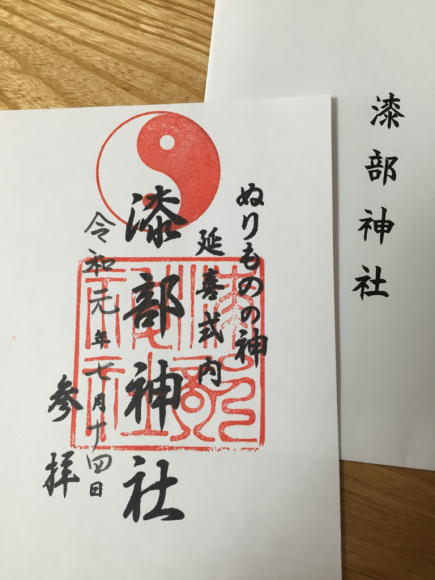 ぬりものの神
延喜式内
漆部神社
令和元年七月十四日
参拝
漆部神社
漆部神社